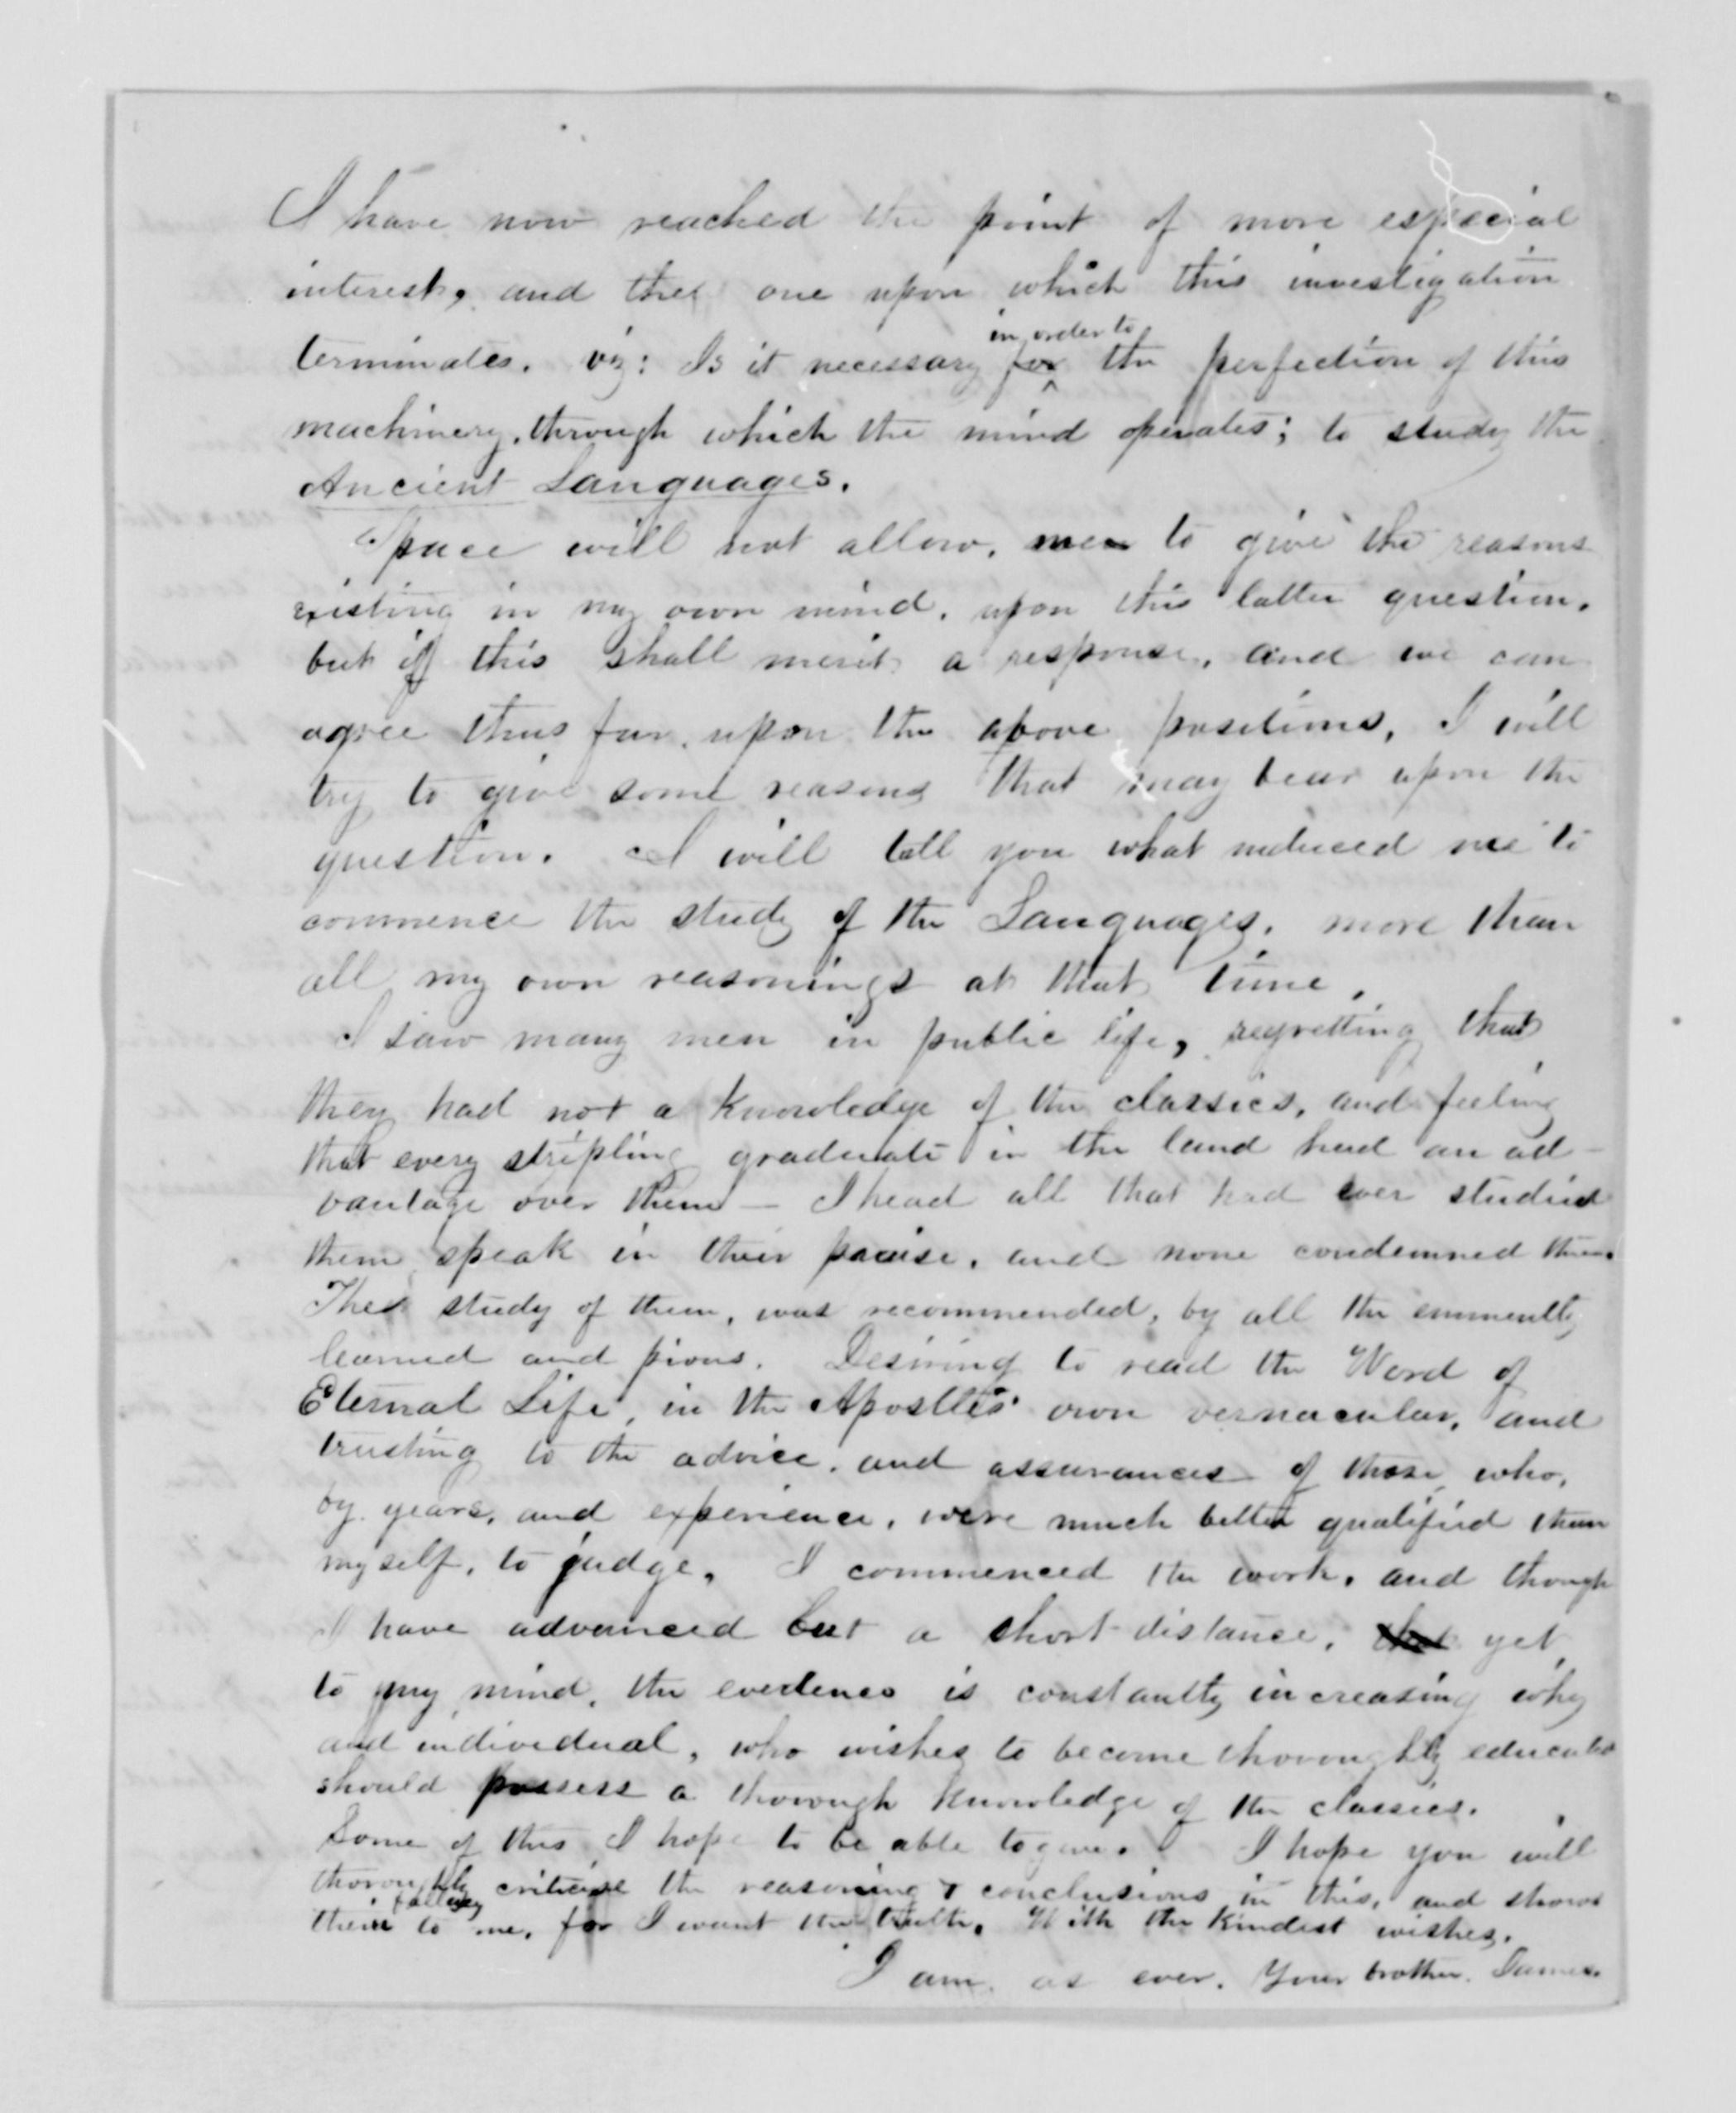 I have now reached the point of more especial
interest, and the one upon which this investigation
terminates. viz: Is it necessary for
in order to
the perfection of this
machinery, through which the mind operates; to study the
Ancient Languages.
Space will not allow, me to give the reasons
existing in my own mind, upon this latter question.
but if this shall merit a response, and we can
agree thus far, upon the above positions, I will
try to give some reasons that may bear upon the
question. I will tell you what induced me to
commence the study of the Languages, more than
all my own reasonings at that time.
I saw many men in public life, regretting that
they had not a knowledge of the classics, and feeling
that every stripling graduate in the land had an ad-
vantage over them — I head all that had ever studied
them speak in their praise, and none condemned them.
The study of them, was recommended, by all the eminently
learned and pious. Desiring to read the Word of
Eternal Life, in the Apostles' own vernacular, and
trusting to the advice, and assurances of those who,
by years, and experience, were much better qualified than
myself, to judge, I commenced the work, and though
I have advanced but a short distance, yet
to my mind, the evidence is constantly increasing why
and individual, who wishes to become thoroughly educated
should possess a thorough knowledge of the classics.
Some of this I hope to be able to give. I hope you will
thoroughly criticise the reasoning & conclusions in this, and show
fallacy
their to me, for I want the truth. With the kindest wishes.
I am, as ever, Your brother. James.